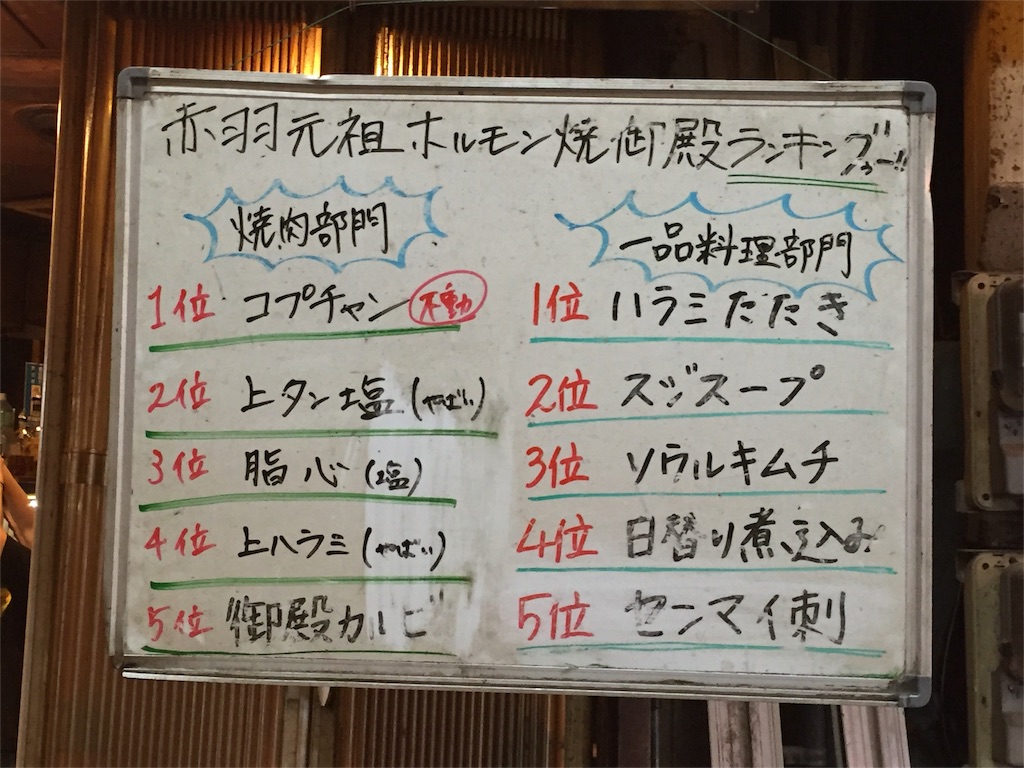 赤羽元祖ホルモン焼御殿ランキングゥー!!
焼肉部門
1位 コプチャン 不動
2位 上タン塩(やばい)
3位 脂心(塩)
4位 上ハラミ(やばい)
5位 御殿カルビ
一品料理部門
1位 ハラミたたき
2位 スジスープ
3位 ソウルキムチ
4位 日替り煮込み
5位 センマイ刺